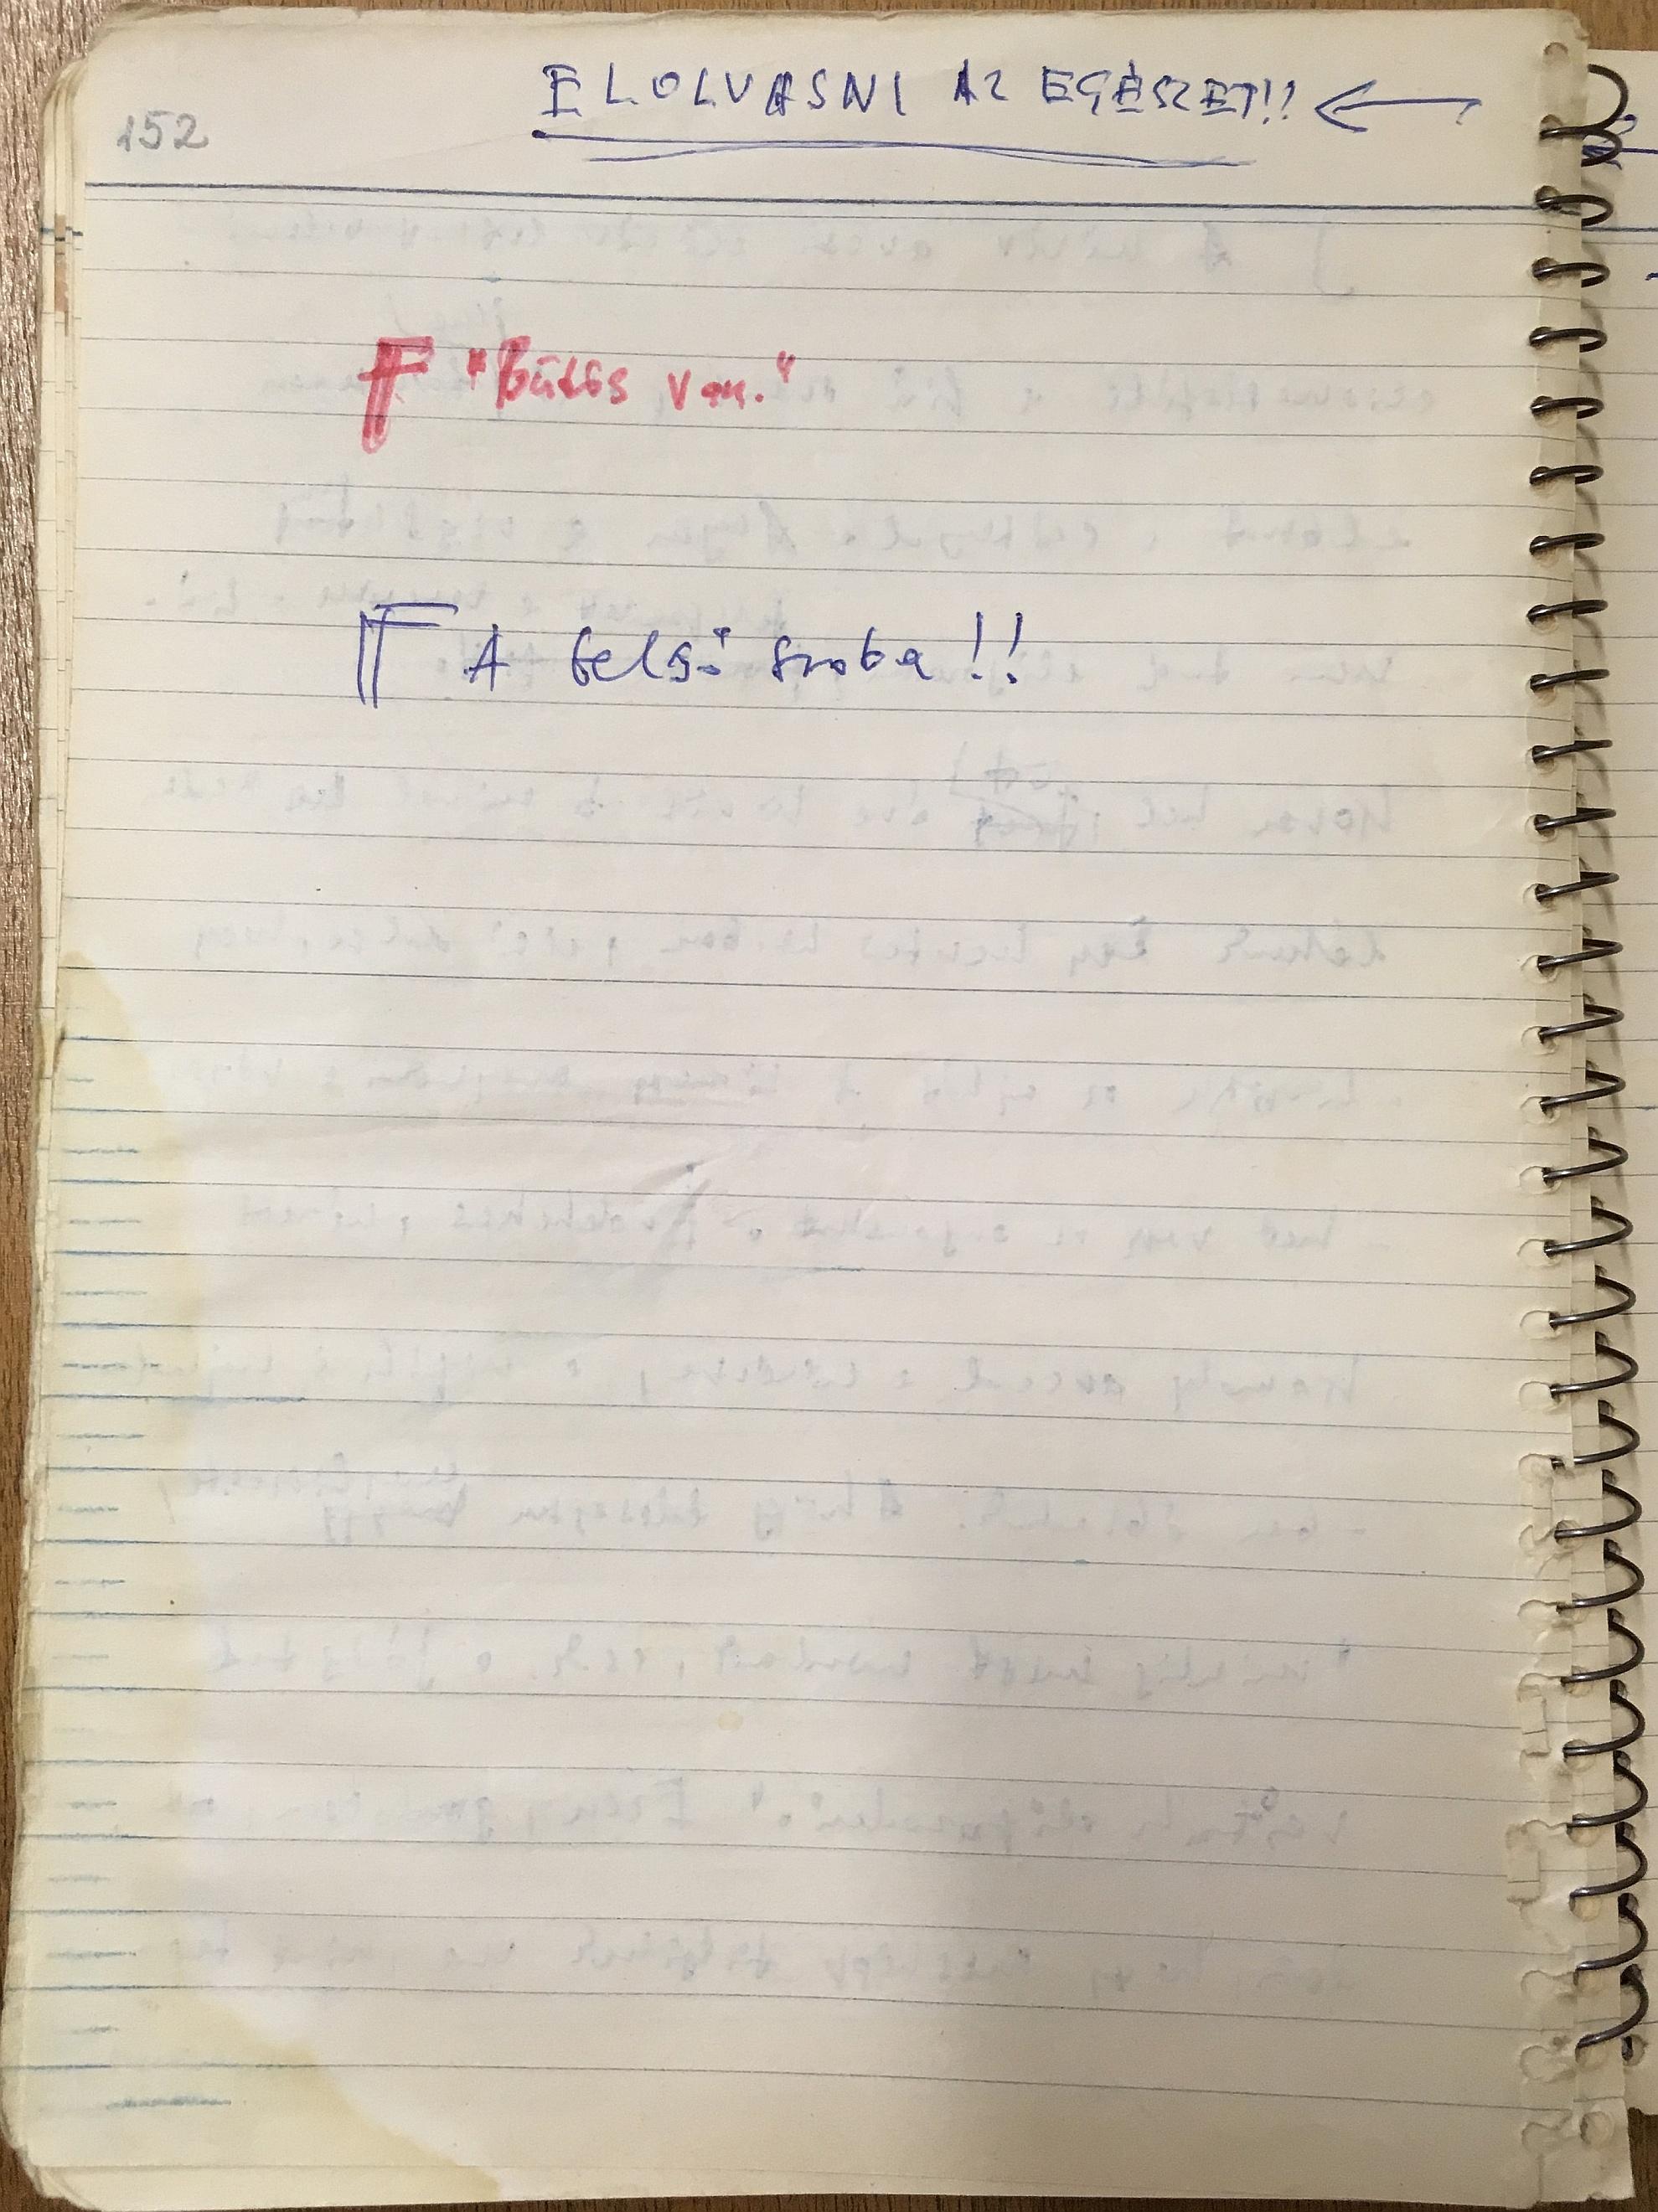 ELOLVASNI AZ EGÉSZET!! ←
152
"Büdös van."
A belső szoba!!